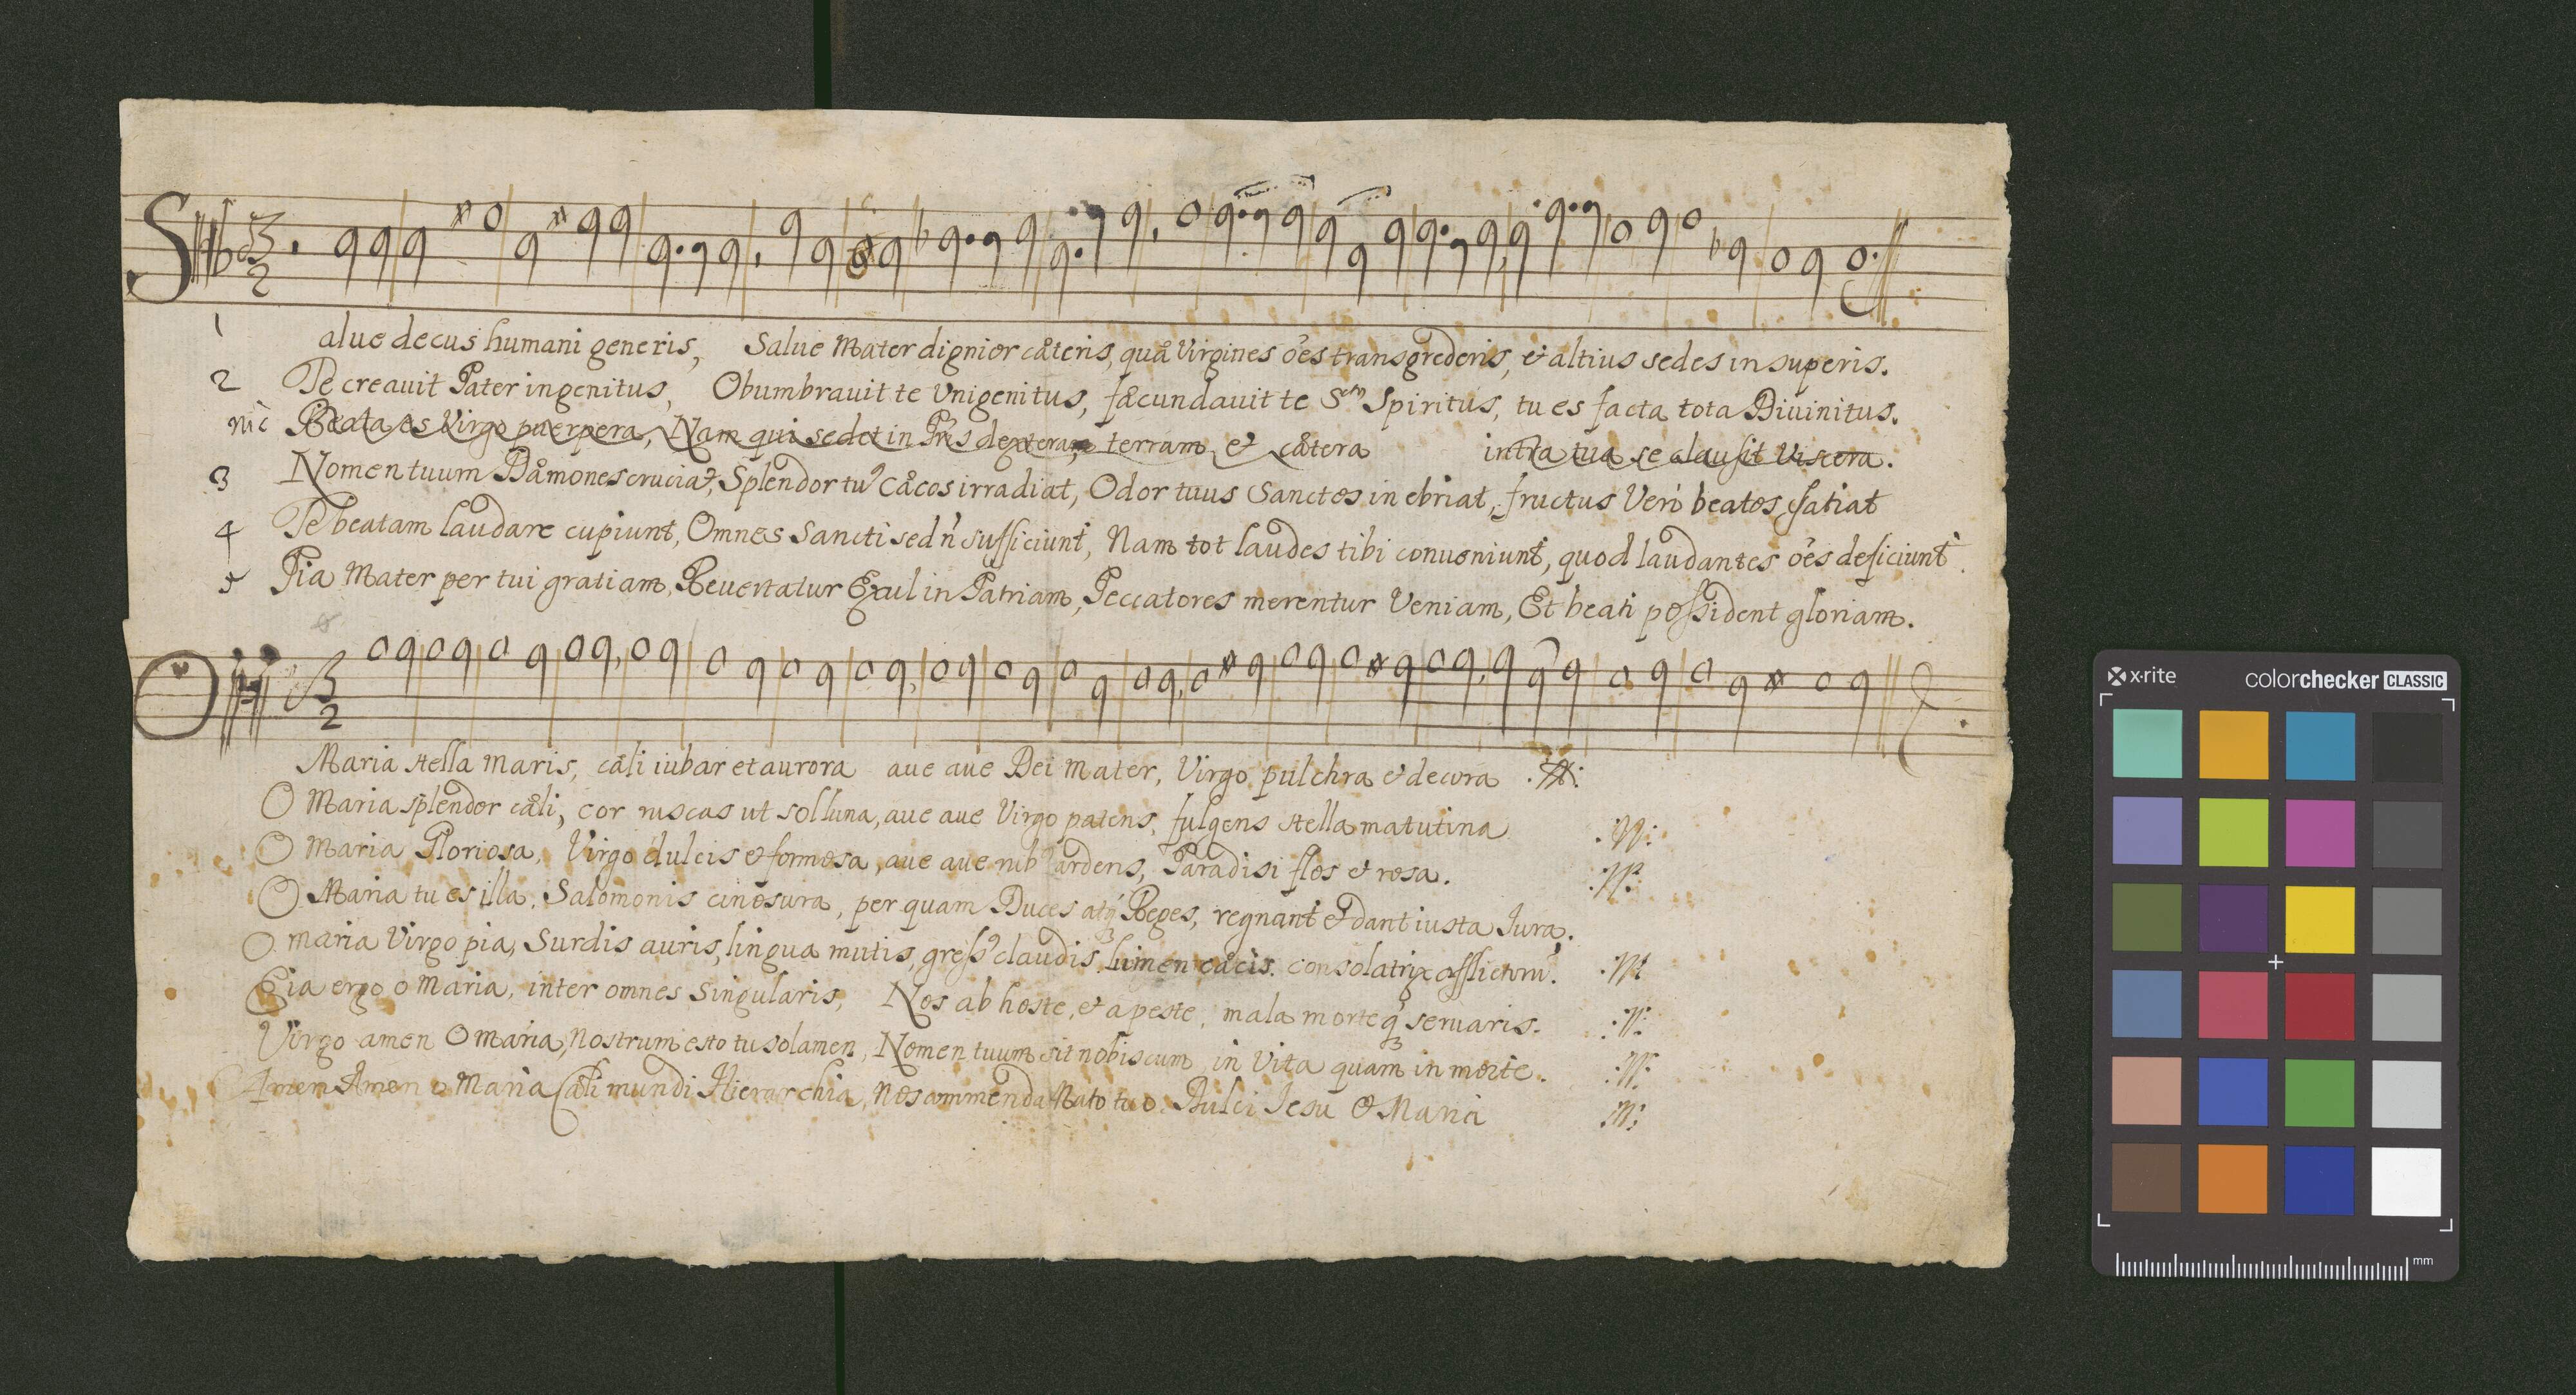 S
3
2
1 alue decus humani generis, Salue Mater dignior cæteris, quâ Virgines oẽs transgrederis, et altius sedes in superis.
2 Te creauit Pater ingenitus, Obumbrauit te Vnigenitus, fæcundauit te S^ctus Spiritus, tu es facta tota Diuinitus.
Beata es Virgo puerpera, Nam qui sedet in Pris dexteram, terram et cætera intra tua se clausit Viscera.
3 Nomen tuum Dæmones cruciat, Splendor tu9 Cæcos irradiat, Odor tuus Sanctos in ebriat, fructus Verò beatos satiat
4 Te beatam laudare cupiunt, Omnes Sancti sed ñ sufficiunt, Nam tot laudes tibi conueniunt, quod laudantes oẽs deficiunt.
5 Pia Mater per tui gratiam, Reuertatur Exul in Patriam, Peccatores merentur Veniam, Et beati possident gloriam.
O
3
2
Maria stella maris, cæli iubar et aurora aue aue Dei mater, Virgo pulchra et decora
O Maria splendor cæli, cor ruscas ut sol luna, aue aue Virgo patens, fulgens stella matutina
O Maria Gloriosa, Virgo dulcis et formosa, aue aue rub9 ardens, Paradisi flos et rosa.
O Maria tu es illa, Salomonis cinosura, per quam Duces atq3 Reges, regnant et dant iusta Iura.
O maria Virgo pia, Surdis auris, lingua mutis, gress9 claudis, lumen cæcis. consolatrix afflictorũ.
Eia ergo o Maria, inter omnes Singularis, Nos ab hoste, et a peste, mala morteq3 seruaris.
Virgo amen O maria, nostrum esto tu solamen, Nomen tuum sit nobiscum in Vita quam in morte.
Amen Amen o Maria Cæli mundi Hierarchia, Nos commenda Nato tuo. Dulci Iesu O Maria
x·rite colorchecker CLASSIC
mm